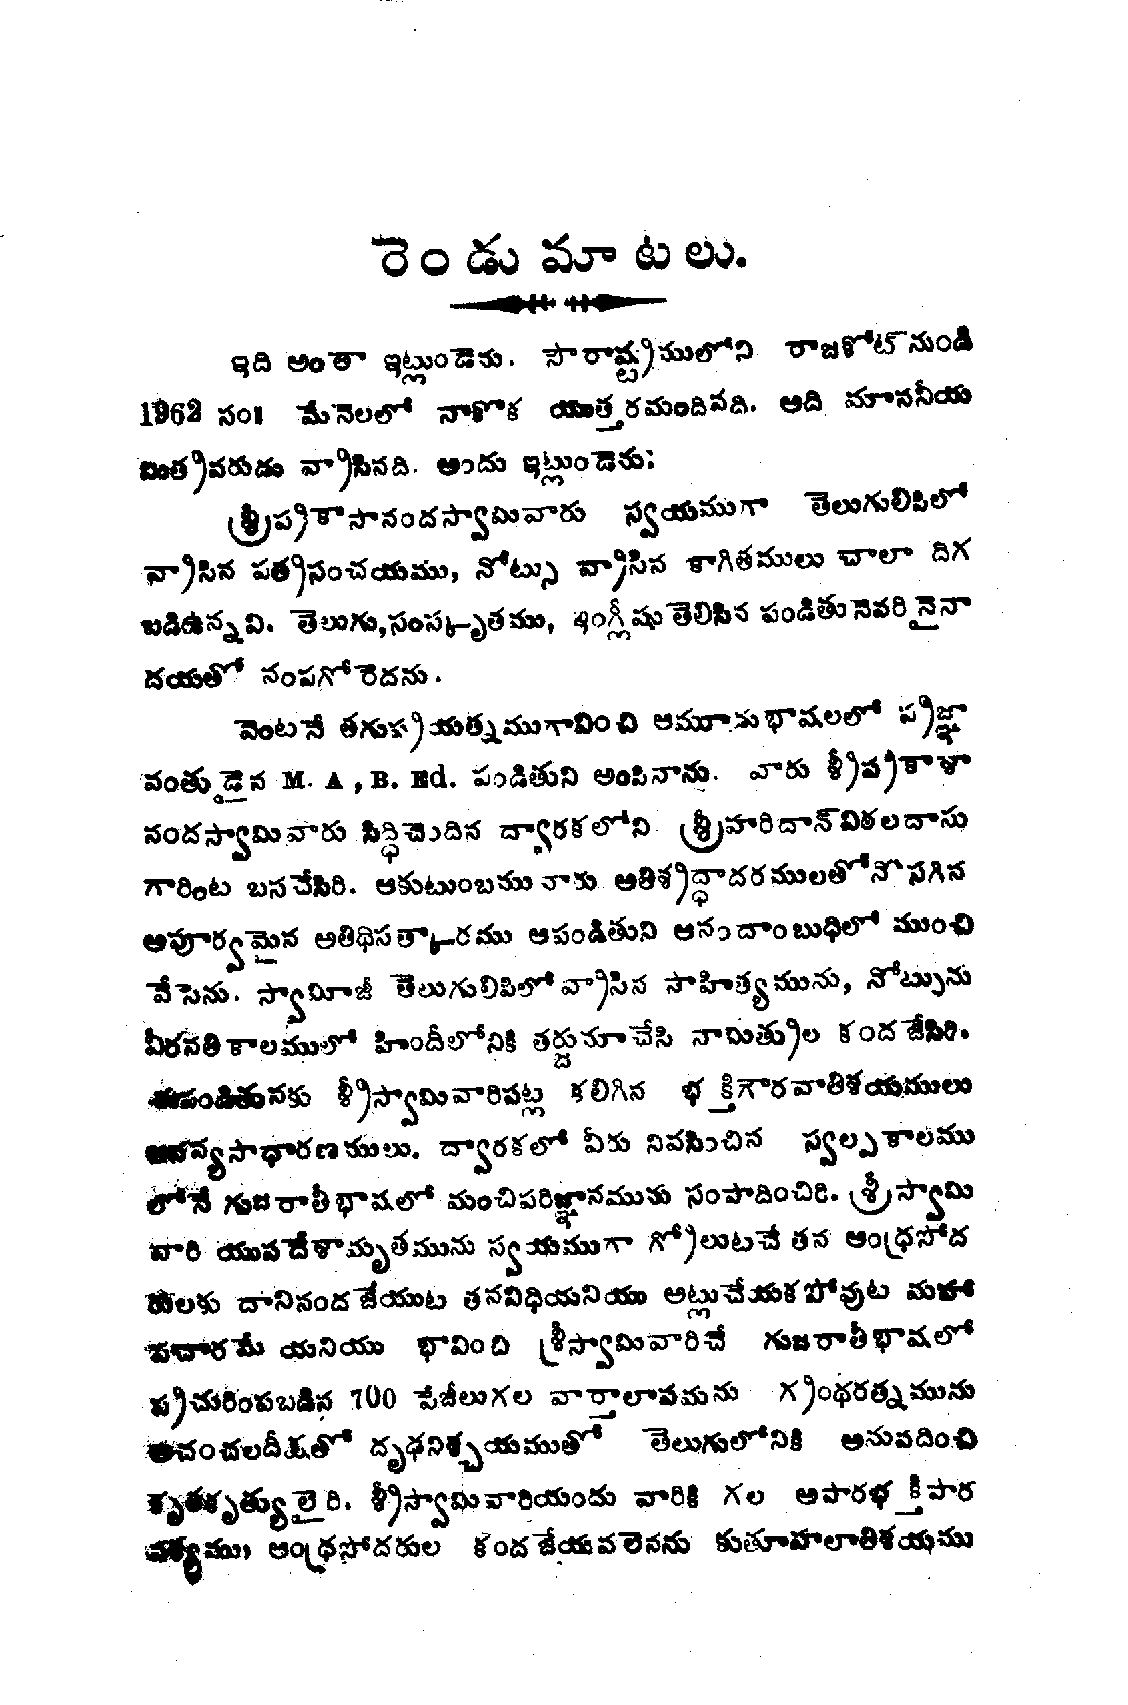 రెండు మాటలు.
ఇది అంతా ఇట్లుండెను. సౌరాష్ట్రములోని రాజకోట్‌నుండి
1962 సం॥ మేనెలలో నాకొక యుత్తరమందినది. అది మాననీయ
మిత్రవరుడు వ్రాసినది. అందు ఇట్లుండెను:
శ్రీప్రకాసానందస్వామివారు స్వయముగా తెలుగులిపిలో
వ్రాసిన పత్రసంచయము, నోట్సు వ్రాసిన కాగితములు చాలా దిగ
బడిఉన్నవి. తెలుగు,సంస్కృతము, ఇంగ్లీషు తెలిసిన పండితు నెవరినైనా
దయతో నంపగోరెదను.
వెంటనే తగుప్రయత్నముగావించి ఆమూడుభాషలలో ప్రజ్ఞా
వంతుడైన M. A, B. Ed. పండితుని అంపినాను. వారు శ్రీప్రకాశా
నందస్వామివారు సిద్ధిచెందిన ద్వారకలోని శ్రీహరిదాన్‌విఠలదాసు
గారింట బసచేసిరి. ఆకుటుంబము వారు అతిశ్రద్ధాదరములతోనొసగిన
అపూర్వమైన అతిథిసత్కారము ఆపండితుని ఆనందాంబుధిలో ముంచి
వేసెను. స్వామీజీ తెలుగులిపిలో వ్రాసిన సాహిత్యమును, నోట్సును
వీరనతికాలములో హిందీలోనికి తర్జుమాచేసి నామిత్రుల కందజేసిరి.
ఈపండితునకు శ్రీస్వామివారిపట్ల కలిగిన భక్తిగౌరవాతిశయములు
అనన్యసాధారణములు. ద్వారకలో వీరు నివసించిన స్వల్పకాలము
లోనే గుజరాతీభాషలో మంచిపరిజ్ఞానమును సంపాదించిరి. శ్రీస్వామి
వారి యుపదేశామృతమును స్వయముగా గ్రోలుటచే తన ఆంధ్రసోద
రులకు దానినందజేయుట తనవిధియనియు అట్లుచేయకపోవుట మహా
పచారమే యనియు భావించి శ్రీస్వామివారిచే గుజరాతీభాషలో
ప్రచురింపబడిన 700 పేజీలుగల వార్తాలాపమను గ్రంథరత్నమును
అచంచలదీక్షతో దృఢనిశ్చయముతో తెలుగులోనికి అనువదించి
కృతకృత్యులైరి. శ్రీస్వామివారియందు వారికి గల అపారభక్తిపార
వశ్యము, ఆంధ్రసోదరుల కందజేయవలెనను కుతూహలాతిశయము